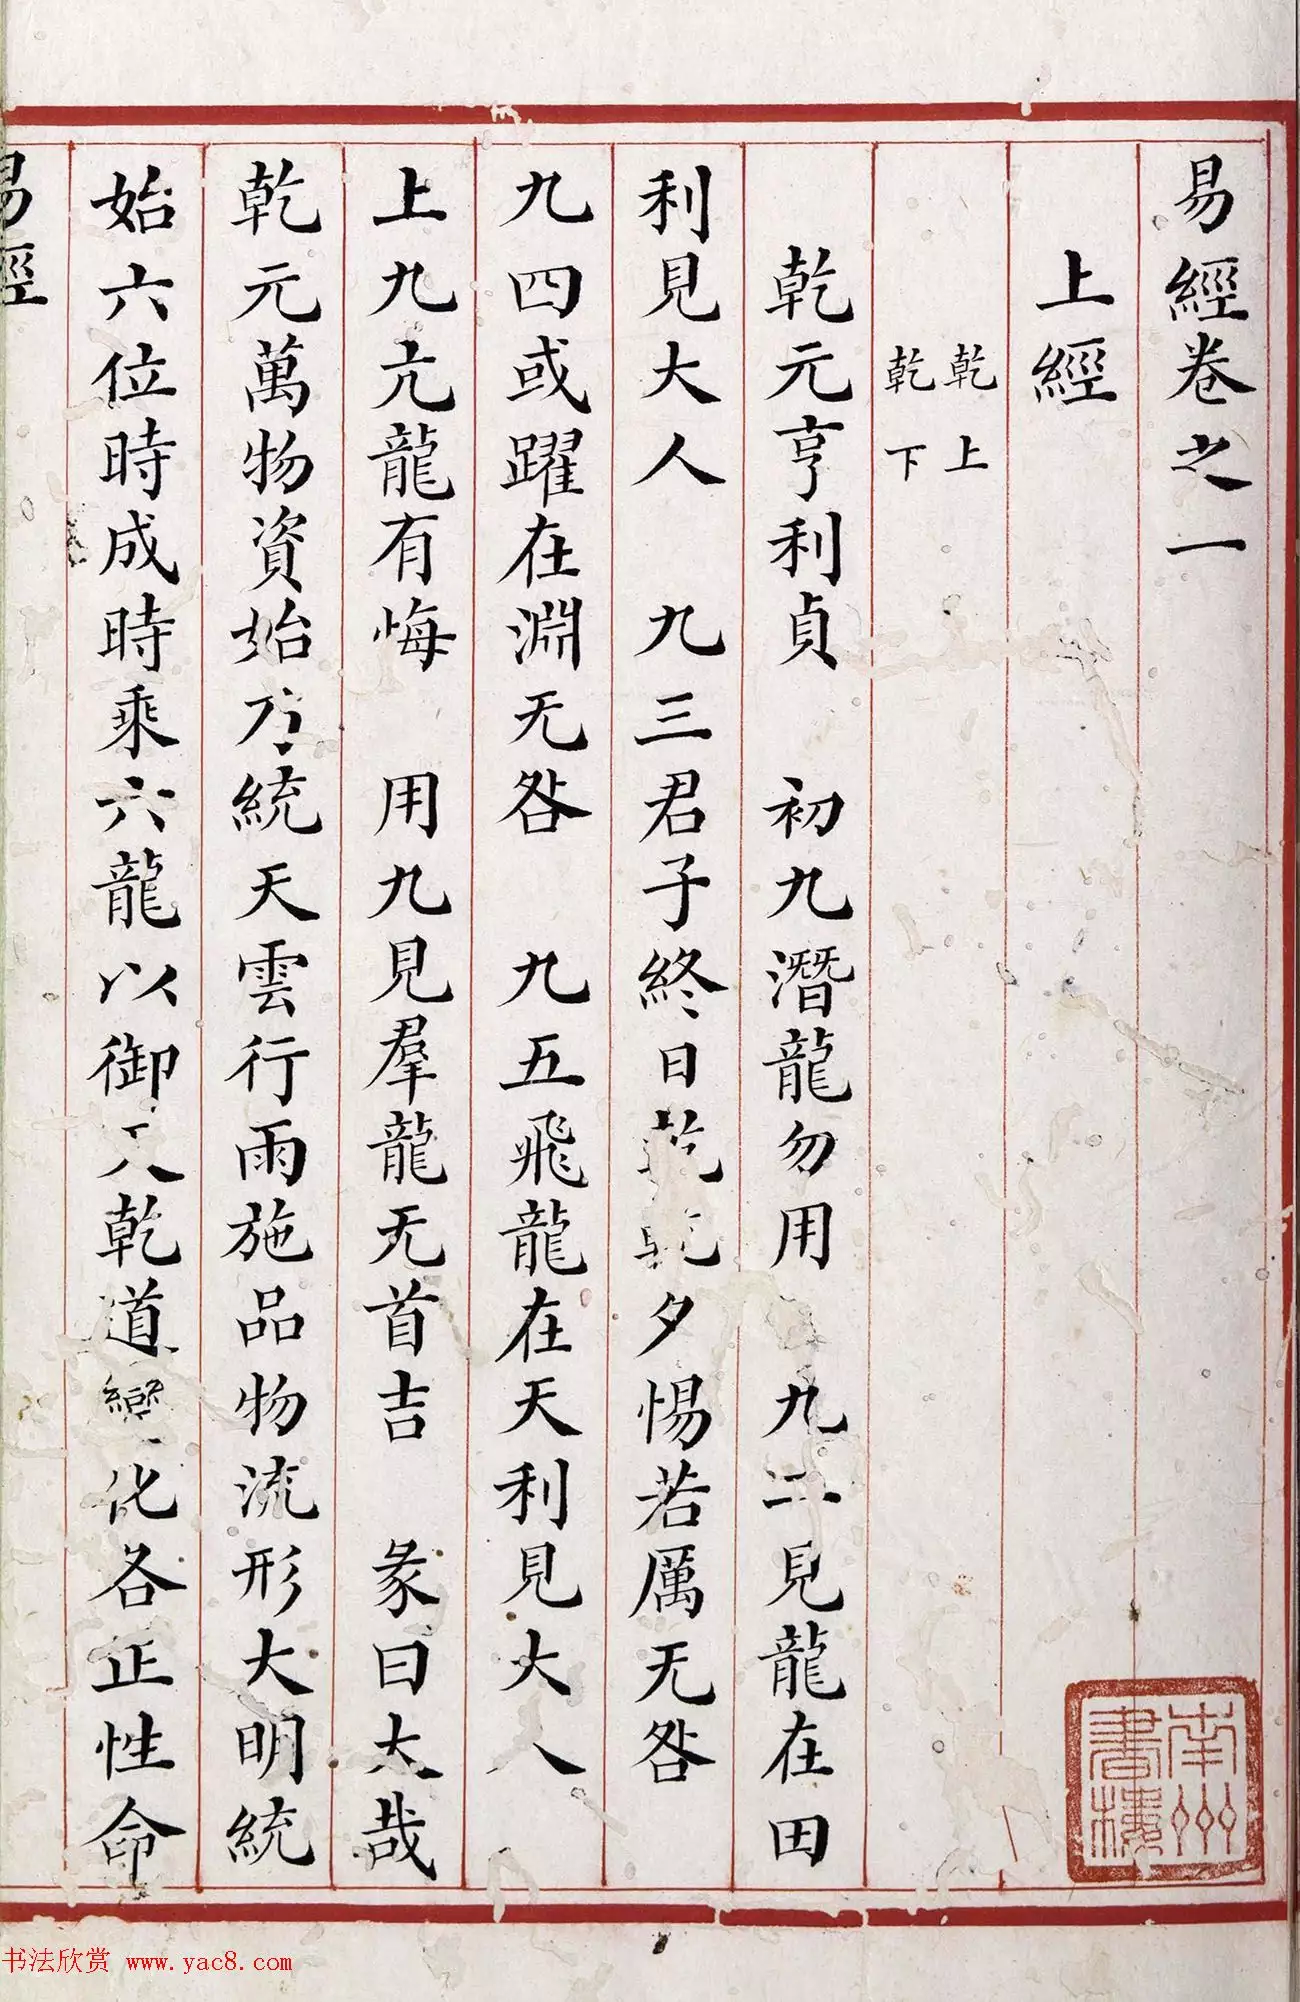 易經卷之一
上經
乾上
乾下
乾元亨利貞　初九潛龍勿用　九二見龍在田
利見大人　九三君子終日乾乾夕惕若厲无咎
九四或躍在淵无咎　九五飛龍在天利見大人
上九亢龍有悔　用九見羣龍无首吉　彖曰大哉
乾元萬物資始方統天雲行雨施品物流形大明統
始六位時成時乘六龍以御天乾道變化各正性命
易經
南州書樓
书法欣赏 www.yac8.com